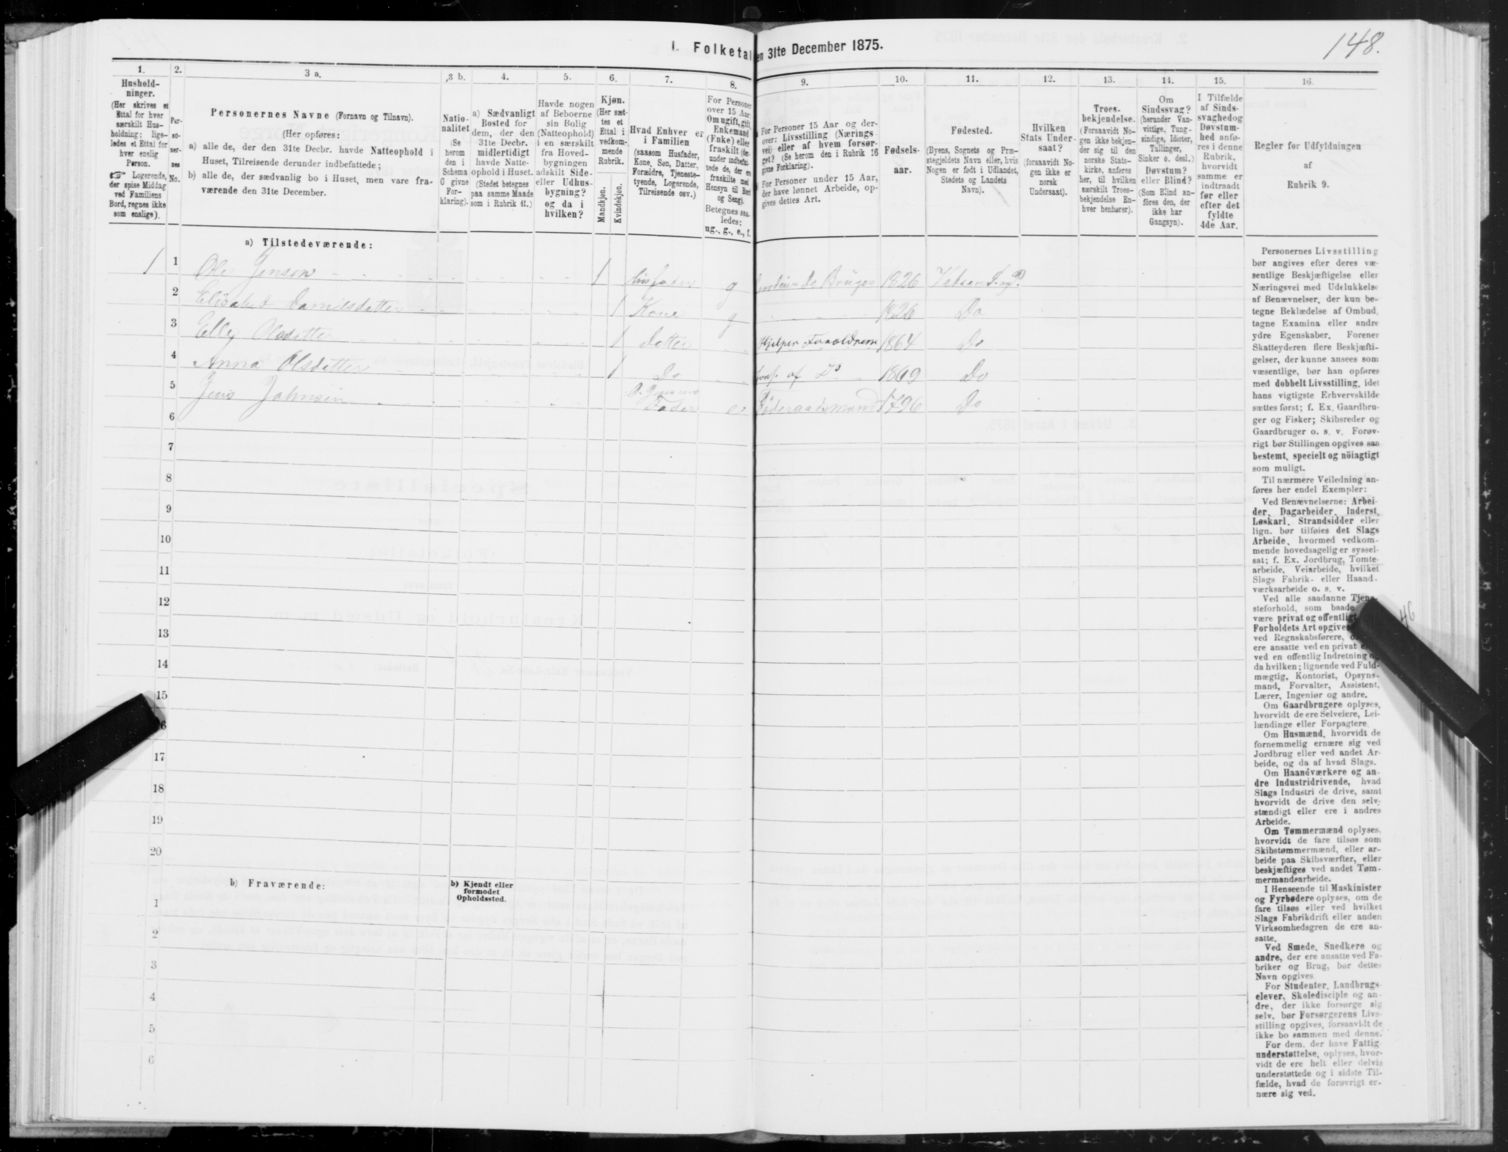 I. Folketal
en 31te December 1875.
148.
1.
2.
3 a.
3 b.
4.
5.
6.
7.
8.
9.
10.
11.
12.
13.
14.
15.
16.
Hushold-
ninger.
(Her skrives et
Ettal for hver
særskilt Hus-
holdning; lige-
ledes et Ettal for
hver enslig
Person.
☞ Logerende,
der spise Middag
ved Familiens
Bord, regnes ikke
som enslige).
Per-
so-
ner-
nes
No.
Personernes Navne (Fornavn og Tilnavn).
(Her opføres:
a) alle de, der den 31te Decbr. havde Natteophold i
Huset, Tilreisende derunder indbefattede;
b) alle de, der sædvanlig bo i Huset, men vare fra-
værende den 31te December.
Natio-
nalitet
(Se
herom
den i
Schema
O givne
For-
klaring).
a) Sædvanligt
Bosted for
dem, der den
31te Decbr.
midlertidigt
havde Natte-
ophold i Huset.
(Stedet betegnes
paa samme Maade
som i Rubrik 11.)
Havde nogen
af Beboerne
sin Bolig
(Natteophold)
i en særskilt
fra Hoved-
bygningen
adskilt Side-
eller Udhus-
bygning?
og da i
hvilken?
Kjøn.
(Her sæt-
tes et
Ettal i
vedkom-
mende
Rubrik.
Mandkjøn.
Kvindekjøn.
Hvad Enhver er
i Familien
(saasom Husfader,
Kone, Søn, Datter,
Forældre, Tjeneste-
tyende, Logerende,
Tilreisende osv.)
For Personer
over 15 Aar:
Om ugift, gift
Enkemand
(Enke) eller
fraskilt (der-
under indbefat-
tede de, der ere
fraskilte med
Hensyn til Bord
og Seng).
Betegnes saa-
ledes:
ug., g., e., f.
For Personer 15 Aar og der-
over: Livsstilling (Nærings-
vei) eller af hvem forsør-
get? (Se herom den i Rubrik 16
givne Forklaring).
For Personer under 15 Aar,
der have lønnet Arbeide, op-
gives dettes Art.
Fødsels-
aar.
Fødested.
(Byens, Sognets og Præ-
stegjeldets Navn eller, hvis
Nogen er født i Udlandet,
Stedets og Landets
Navn).
Hvilken
Stats Under-
saat?
(forsaavidt No-
gen ikke er
norsk
Undersaat).
Troes-
bekjendelse.
(Forsaavidt No-
gen ikke bekjen-
der sig til den
norske Stats-
kirke, anføres
her, til hvilken
særskilt Troes-
bekjendelse En-
hver henhører).
Om
Sindssvag?
(herunder Van-
vittige, Tung-
sindige, Idioter,
Tullinger,
Sinker o. desl.)
Døvstum?
eller Blind?
(Som Blind an-
føres den, der
ikke har
Gangsyn).
I Tilfælde
af Sinds-
svaghed og
Døvstum-
hed anfø-
res i denne
Rubrik,
hvorvidt
samme er
indtraadt
før eller
efter det
fyldte
4de Aar.
Regler for Udfyldningen
af
Rubrik 9.
a) Tilstedeværende:
1 1 Ole Jensen 1 g 1826
2 Elisabet Danielsdatter 1 Kone g 1826 Do
3 Elly Olsdatter 1 datter Hjelper Forældrene 1864 Do
4 Anna Olsdatter 1 Do af Do 1869 Do
5 Jens Johnsen Fader e Føderaadsmand 1796 Do
6
7
8
9
10
11
12
13
14
15
16
17
18
19
20
b) Fraværende:
b) Kjendt eller
formodet
Opholdssted.
1
2
3
4
5
6
Personernes Livsstilling
bør angives efter deres væ-
sentlige Beskjæftigelse eller
Næringsvei med Udelukkelse
af Benævnelser, der kun be-
tegne Beklædelse af Ombud,
tagne Examina eller andre
ydre Egenskaber. Forener
Skatteyderen flere Beskjæfti-
gelser, der kunne ansees som
væsentlige, bør han opføres
med dobbelt Livsstilling, idet
hans vigtigste Erhvervskilde
sættes først; f. Ex. Gaardbru-
ger og Fisker; Skibsreder og
Gaardbruger o. s. v. Forøv-
rigt bør Stillingen opgives saa
bestemt, specielt og nöiagtigt
som muligt.
Til nærmere Veiledning an-
føres her endel Exempler:
Ved Benævnelserne: Arbei-
der, Dagarbeider, Inderst,
Løskarl, Strandsidder eller
lign. bør tilføies det Slags
Arbeide, hvormed vedkom-
mende hovedsagelig er syssel-
sat; f. Ex. Jordbrug, Tomte-
arbeide, Veiarbeide, hvilket
Slags Fabrik- eller Haand-
værksarbeide o. s. v.
Ved alle saadanne Tjene-
steforhold, som baade
være privat og offentligt
Forholdets Art opgives
ved Regnskabsførere,
ere ansatte ved en privat
ved en offentlig Indretning
da hvilken; lignende ved Fuld-
mægtig, Kontorist, Opsyns-
mand, Forvalter, Assistent,
Lærer, Ingeniør og andre.
Om Gaardbrugere oplyses,
hvorvidt de ere Selveiere, Lei-
lændinge eller Forpagtere.
Om Husmænd, hvorvidt de
fornemmelig ernære sig ved
Jordbrug eller ved andet Ar-
beide, og da af hvad Slags.
Om Haandværkere og an-
dre Industridrivende, hvad
Slags Industri de drive, samt
hvorvidt de drive den selv-
stændigt eller ere i andres
Arbeide.
Om Tømmermænd oplyses,
hvorvidt de fare tilsøs som
Skibstømmermænd, eller ar-
beide paa Skibsværfter, eller
beskjæftiges ved andet Tøm-
mermandsarbeide.
I Henseende til Maskinister
og Fyrbødere oplyses, om de
fare tilsøs eller ved hvilket
Slags Fabrikdrift eller anden
Virksomhedsgren de ere an-
satte.
Ved Smede, Snedkere og
andre, der ere ansatte ved Fa-
briker og Brug, bør dettes
Navn opgives
For Studenter, Landbrugs-
elever, Skoledisciple og an-
dre, der ikke forsørge sig
selv, bør Forsørgerens Livs-
stilling opgives, forsaavidt de
ikke bo sammen med denne.
For dem, der have Fattig-
understøttelse, oplyses, hvor-
vidt de ere helt eller delvis
understøttede og i sidste Til-
fælde, hvad de forøvrigt er-
nære sig ved.
46